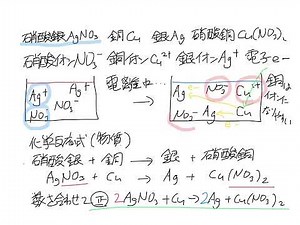 硝酸銀AgNO₃ 銅Cu 銀Ag 硝酸銅Cu(NO₃)₂
硝酸イオンNO₃⁻ 銅イオンCu²⁺ 銀イオンAg⁺ 電子e⁻
Ag⁺ Ag⁺
NO₃⁻
NO₃⁻
Ag NO₃⁻ Cu²⁺
Ag Cu
NO₃⁻
化学反応式(物質)
硝酸銀 + 銅 → 銀 + 硝酸銅
AgNO₃ + Cu → Ag + Cu(NO₃)₂
数を合わせる 正 2AgNO₃ + Cu → 2Ag + Cu(NO₃)₂